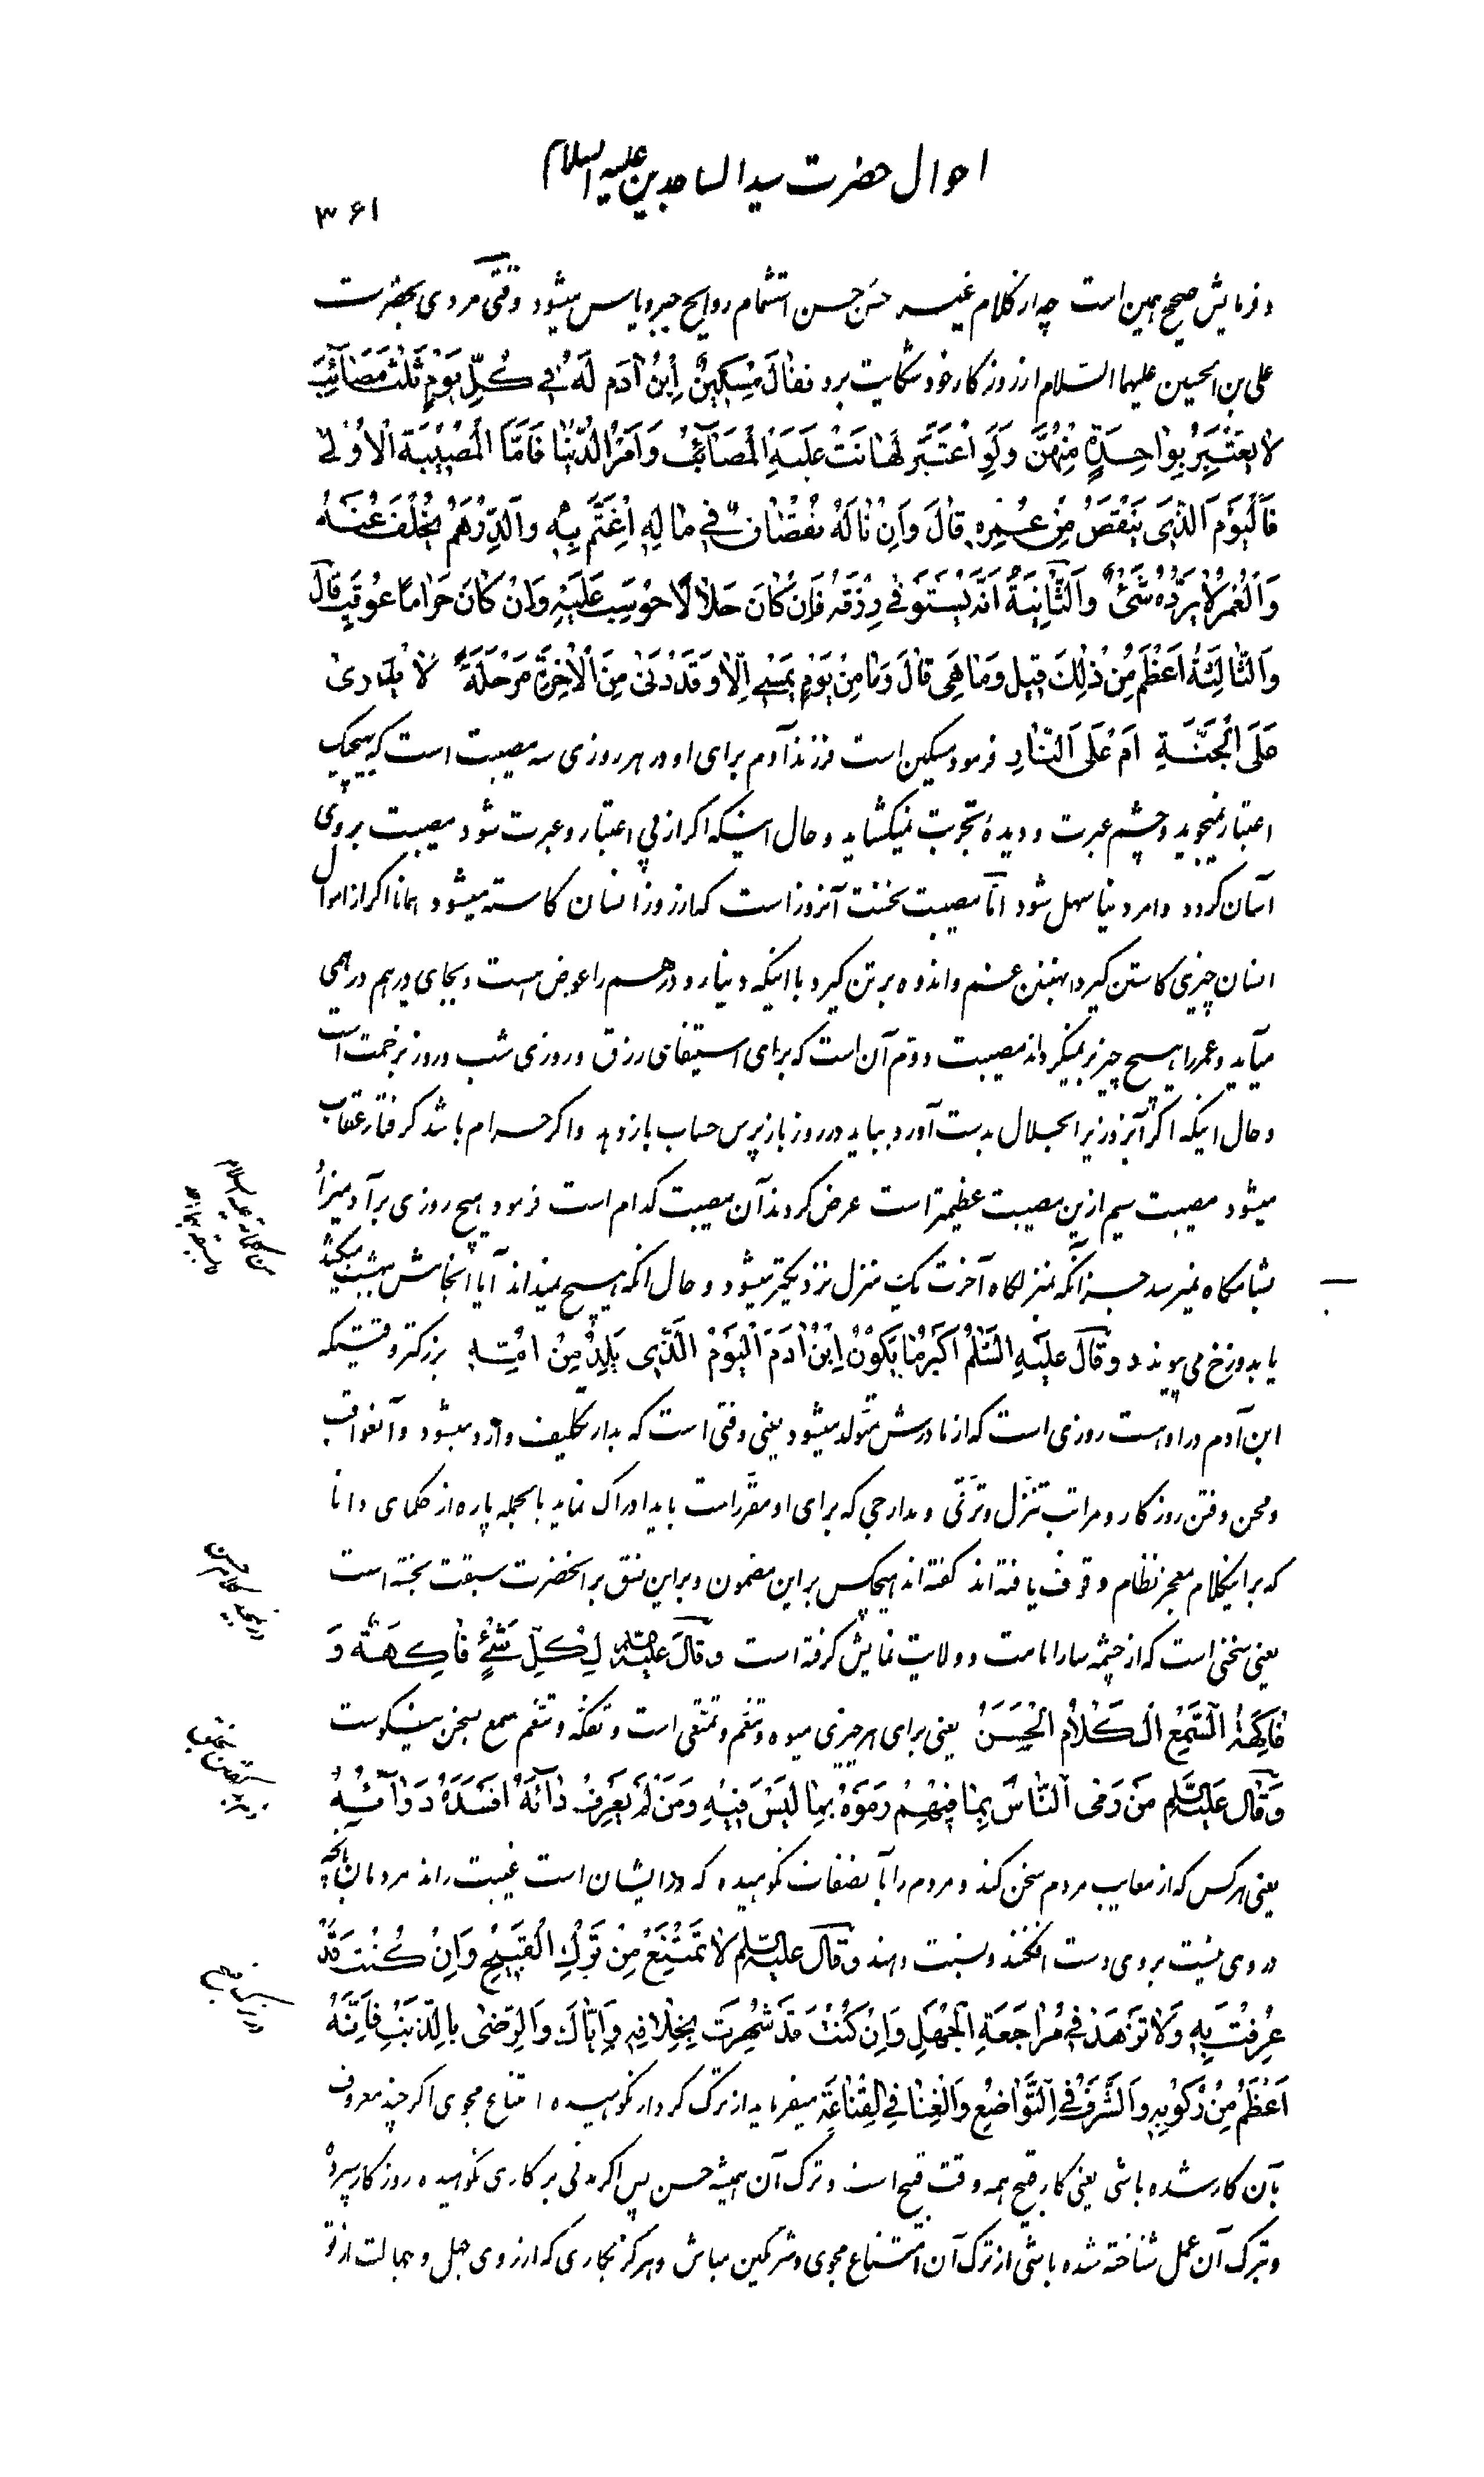 احوال حضرت سید الساجدین علیه السلام
۳۶۱
و فرمایش صحیح همین است چه از کلام غیر حسن حسن استشمام روایح خیر و یاس میشود وقتی مردی بحضرت
علی بن الحسین علیهما السلام از روزکار خود شکایت برد فَقالَ مِسْکِینٌ اِبْنُ اٰدَم لَهُ فِی کُلِّ یَوْمٍ ثَلٰثُ مَصَآئِبَ
لا یَعْتَبِرُ بِواحِدَةٍ مِنْهُنَّ وَلَوِ اعْتَبَرَ لَهَانَتْ عَلَیْهِ الْمَصَآئِبُ وَ اَمْرُ الدُّنْیا فَاَمَّا الْمُصِیْبَةُ الْاُوْلٰی
فَالْیَوْمَ الَّذِی یَنْقُصُ مِنْ عُمْرِهِ قالَ وَاِنْ نالَهُ نُقْصٰانٌ فِی مالِهِ اِغْتَمَّ بِهِ وَالدِّرْهَمُ یُخْلَفُ عَنْهُ
وَالْعُمْرُ لا یَرُدُّهُ شَیْءٌ وَالثّانِیَةُ اَنَّهُ یَسْتَوْفِی رِزْقَهُ فَاِنْ کانَ حَلالًا حُوسِبَ عَلَیْهِ وَاِنْ کانَ حَرامًا عُوقِبَ قالَ
وَالثّالِثَةُ اَعْظَمُ مِنْ ذٰلِکَ قِیلَ وَمَا هِیَ قالَ وَمامِنْ یَوْمٍ یُمْسِی اِلّا وَقَدْ دَنٰی مِنَ الْاٰخِرَةِ مَرْحَلَةً لا یَدْرِی
عَلَی الْجَنَّةِ اَمْ عَلَی النّارِ فرمود مسکین است فرزند آدم برای او در هر روزی سه مصیبت است که بهیچیک
اعتبار نمیجوید و چشم عبرت و دیدهٔ تجربت نمیکشاید و حال اینکه اکر از پی اعتبار و عبرت شود مصیبت بروی
آسان کردد و امر دنیا سهل شود امّا مصیبت نخست آنروز است که از روز انسان کاسته میشود همانا اکر از اموال
انسان چیزی کاستن کیرد بهمین غم و اندوه برتن کیرد با اینکه دینار و درهم را عوض هست و بجای درهم درهمی
میآید و عمر را هیچ چیز برنمیکرداند مصیبت دوّم آن است که برای استیفای رزق و روزی شب و روز بزحمت است
و حال اینکه اکر آنروزیرا بحلال بدست آورد بباید در روز بازپرس حساب باز دهد و اکر حرام باشد کرفتار عقاب
میشود مصیبت سیم ازین مصیبت عظیمتر است عرض کردند آن مصیبت کدام است فرمود هیچ روزی بر آدمیزاد
بشامکاه نمیرسد جز آنکه بمنزلکاه آخرت یک منزل نزدیکتر میشود و حال انکه هیچ نمیداند آیا انجامش ببهشت میکشد
یا بدوزخ می پیوندد وَقالَ عَلَیْهِ السَّلٰمُ اَکْبَرُ مٰا یَکُوْنُ اِبْنُ اٰدَمَ الْیَوْمَ الَّذِی یَلِدُ مِنْ اُمِّهِ بزرکتر وقتیکه
ابن آدم در اوهست روزی است که از مادرش متولد میشود یعنی وقتی است که بدار تکلیف وارد میشود و آنعواقب
و محن و فتن روزکار و مراتب تنزّل و ترقی و مدارجی که برای او مقرّر است باید ادراک نماید بالجمله پاره از حکمای دانا
که براینکلام معجز نظام وقوف یافته اند کفته اند هیچکس بر این مضمون و براین نسق بر انحضرت سبقت نجسته است
یعنی سخنی است که از چشمه سار امامت و ولایت نمایش کرفته است وَقالَ علیه السلم لِکُلِّ شَیْءٍ فاکِهَةٌ وَ
فاکِهَةُ السَّمْعِ الْکَلامُ الْحَسَنُ یعنی برای هر چیزی میوه و تنعّم و تمتّعی است و تفکّه و تنعّم سمع سخن نیکوست
وَقالَ عَلَیْهِ السَّلَمُ مَنْ رَمَی النّاسَ بِما فِیهِمْ رَمَوْهُ بِما لَیْسَ فِیْهِ وَمَنْ لَمْ یَعْرِفْ دائَهُ اَفْسَدَهُ دَوٰآئُهُ
یعنی هر کس که از معایب مردم سخن کند و مردم را بآنصفات نکوهیده که در ایشان است غیبت راند مردمان بآنچه
در وی نیست بروی دست افکنند و نسبت دهند وَقالَ علیه السّلم لا تَمْتَنِعْ مِنْ تَرْكِ الْقَبِیْحِ وَاِنْ کُنْتَ قَدْ
عُرِفْتَ بِهِ وَلا تَزْهَدْ فِی مُراجَعَةِ الْجَهْلِ وَاِنْ کُنْتَ قَدْ شُهِرْتَ بِخِلافِهِ وَاِیّاكَ وَالرِّضٰی بِالذَّنْبِ فَاِنَّهُ
اَعْظَمُ مِنْ رُکُوْبِهِ وَالشَّرَفُ فِی التَّواضُعِ وَالْغِنا فِی الْقِناعَةِ میفرماید از ترک کردار نکوهیده امتناع مجوی اکر چند معروف
بآن کار شده باشی یعنی کار قبیح همه وقت قبیح است و ترک آن همیشه حسن پس اکر مدتی بر کاری نکوهیده روزکار سپردهٔ
و بترک آن عمل شناخته شده باشی از ترک آن امتناع مجوی و شرمکین مباش و هرکز بکاری که از روی جهل و جهالت از تو